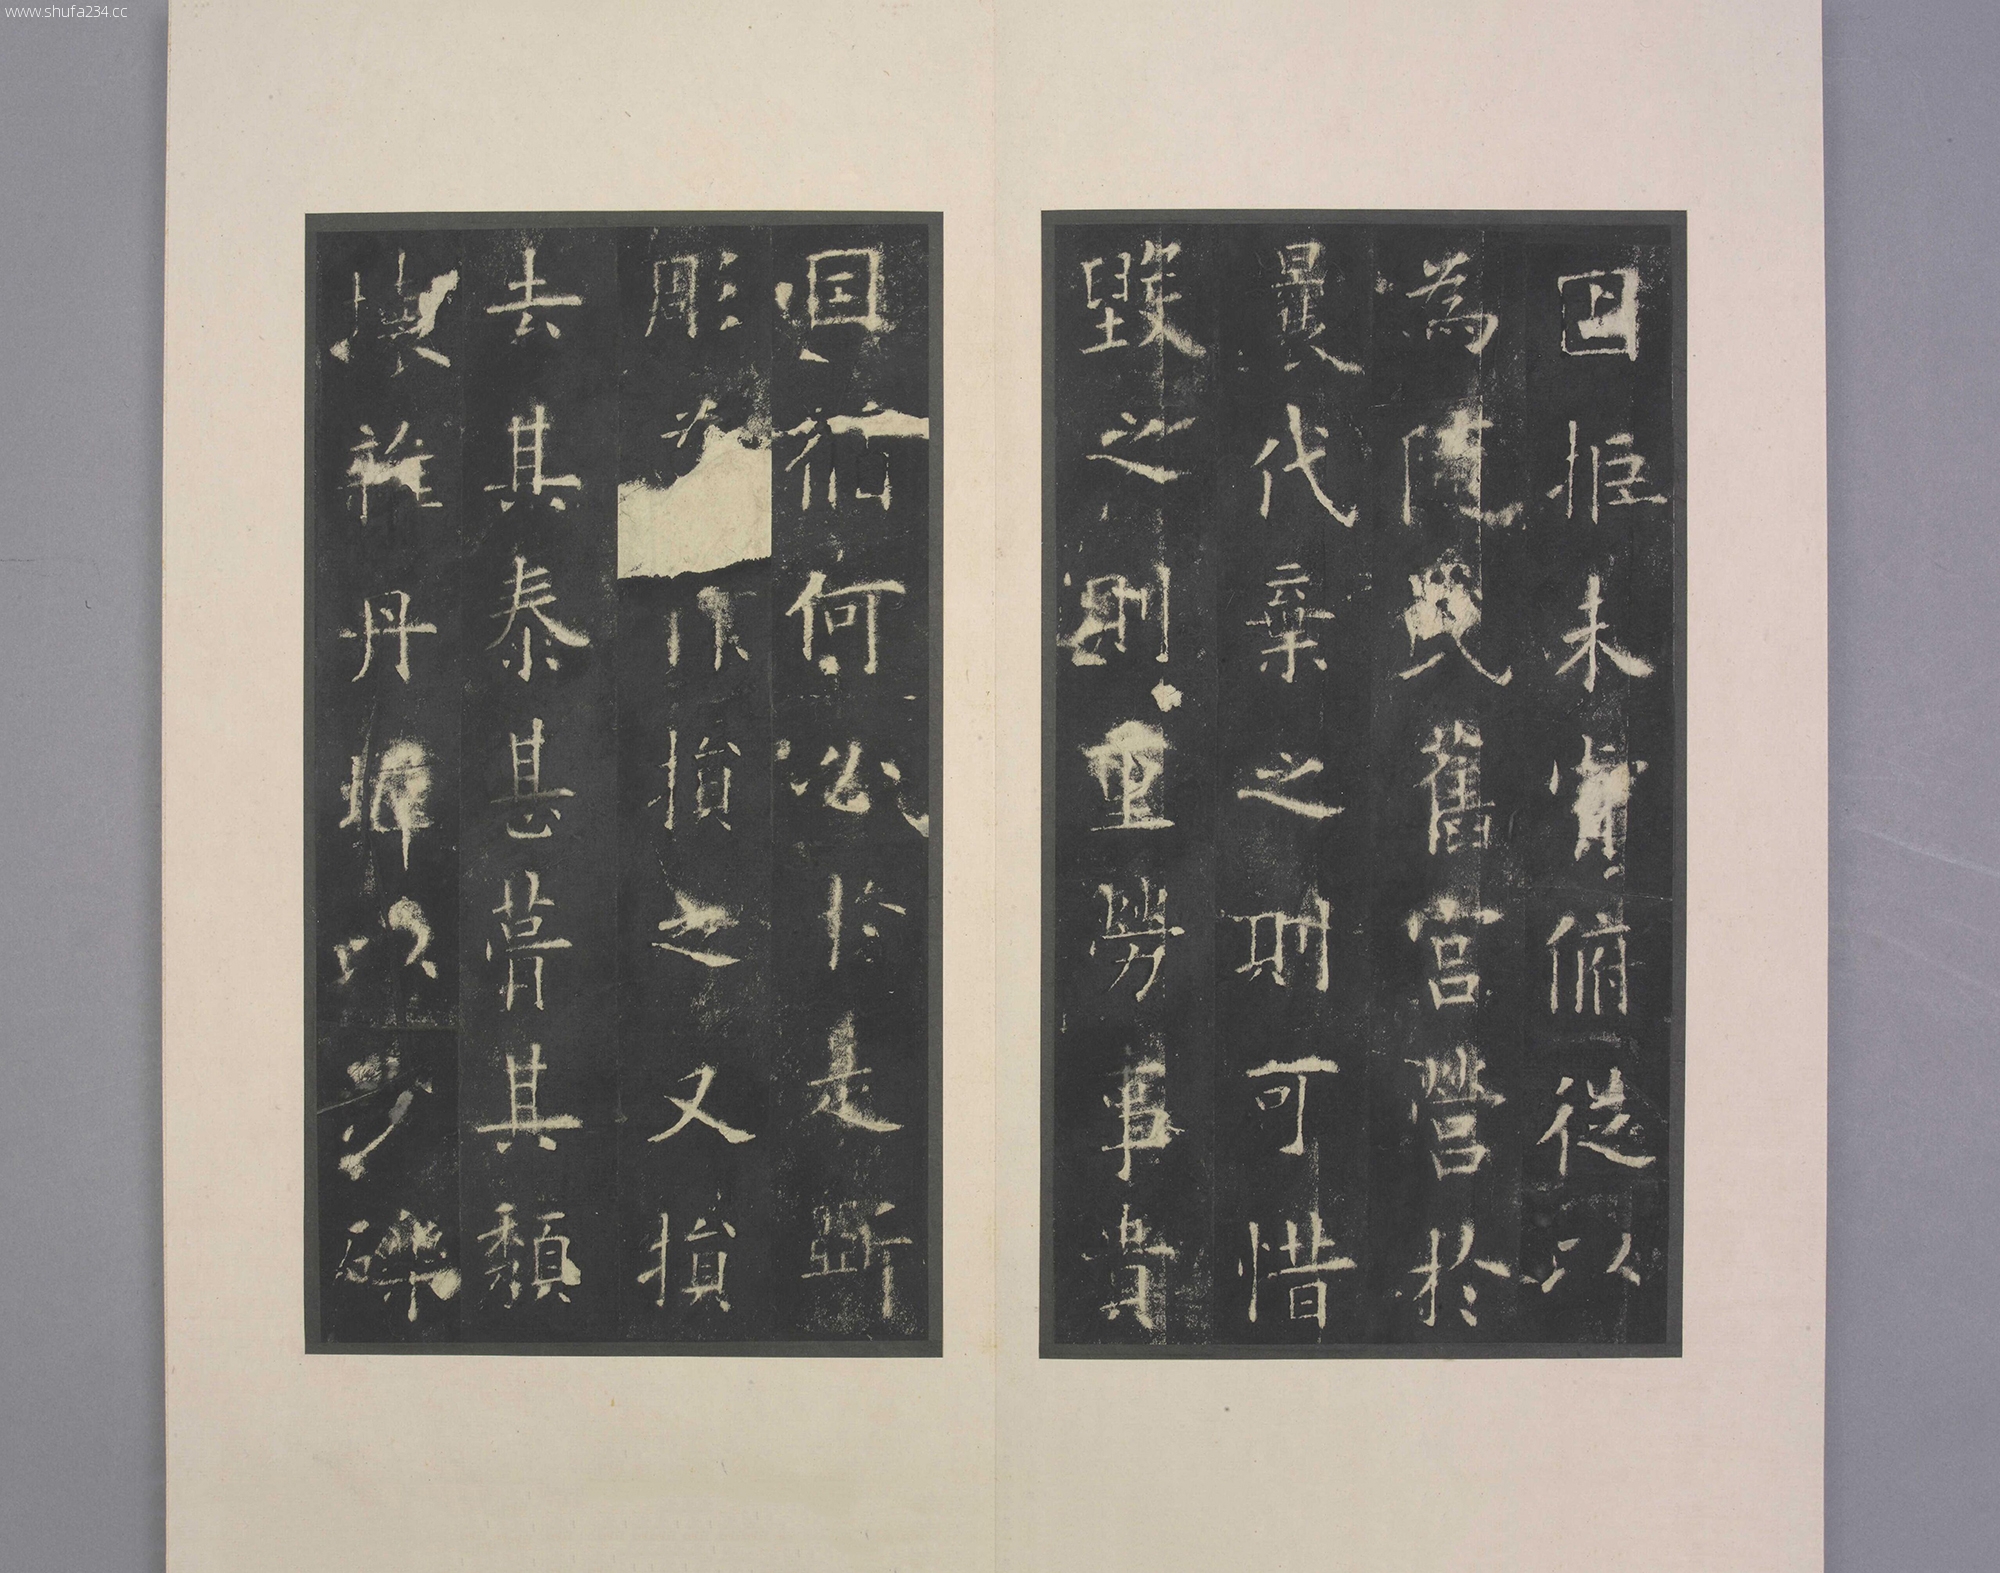 www.shufa234.cc
固拒未肯俯從以
為隨氏舊宮營於
曩代棄之則可惜
毀之則重勞事貴
因循何必於是斲
彫為損之又損
去其泰甚葺其頹
壞雜丹墀以沙礫